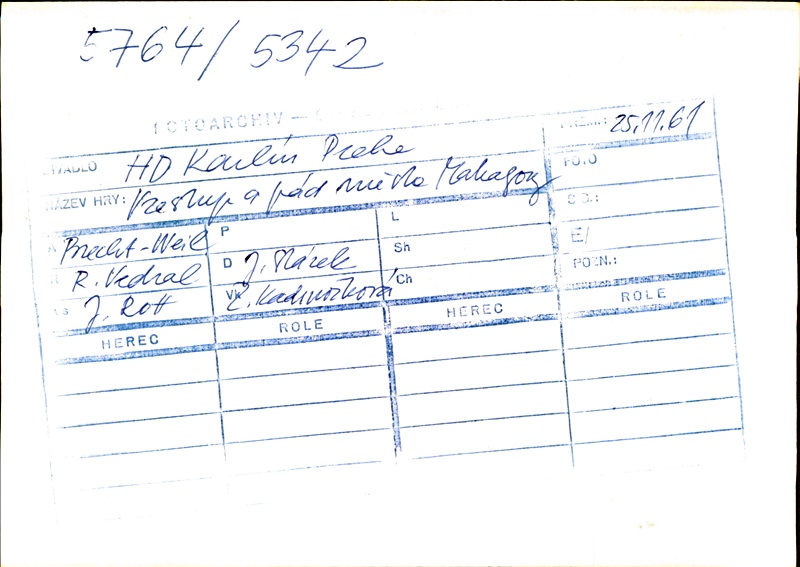 5764/5342
FOTOARCHIV —
PREM.: 25.11.61
DIVADLO HD Karlín Praha
NÁZEV HRY: Vzestup a pád města Mahagony
FOTO
A Brecht-Weil P L S.O.:
R R. Vedral D J. Márek Sh E/
Vs J. Rott Vk Z. Kadrnožková Ch POZN.:
HEREC ROLE HEREC ROLE